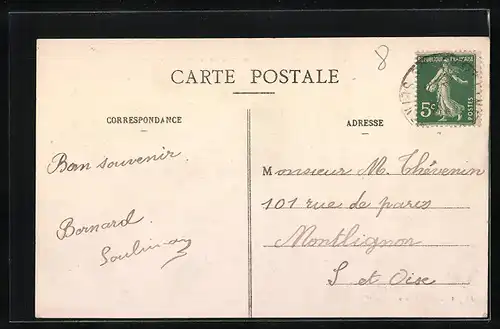 8
CARTE POSTALE
REPUBLIQUE FRANÇAISE
5c
POSTES
CORRESPONDANCE
ADRESSE
Bon souvenir
Bernard
Monsieur M. Thévenin
101 rue de paris
Montlignon
S et Oise